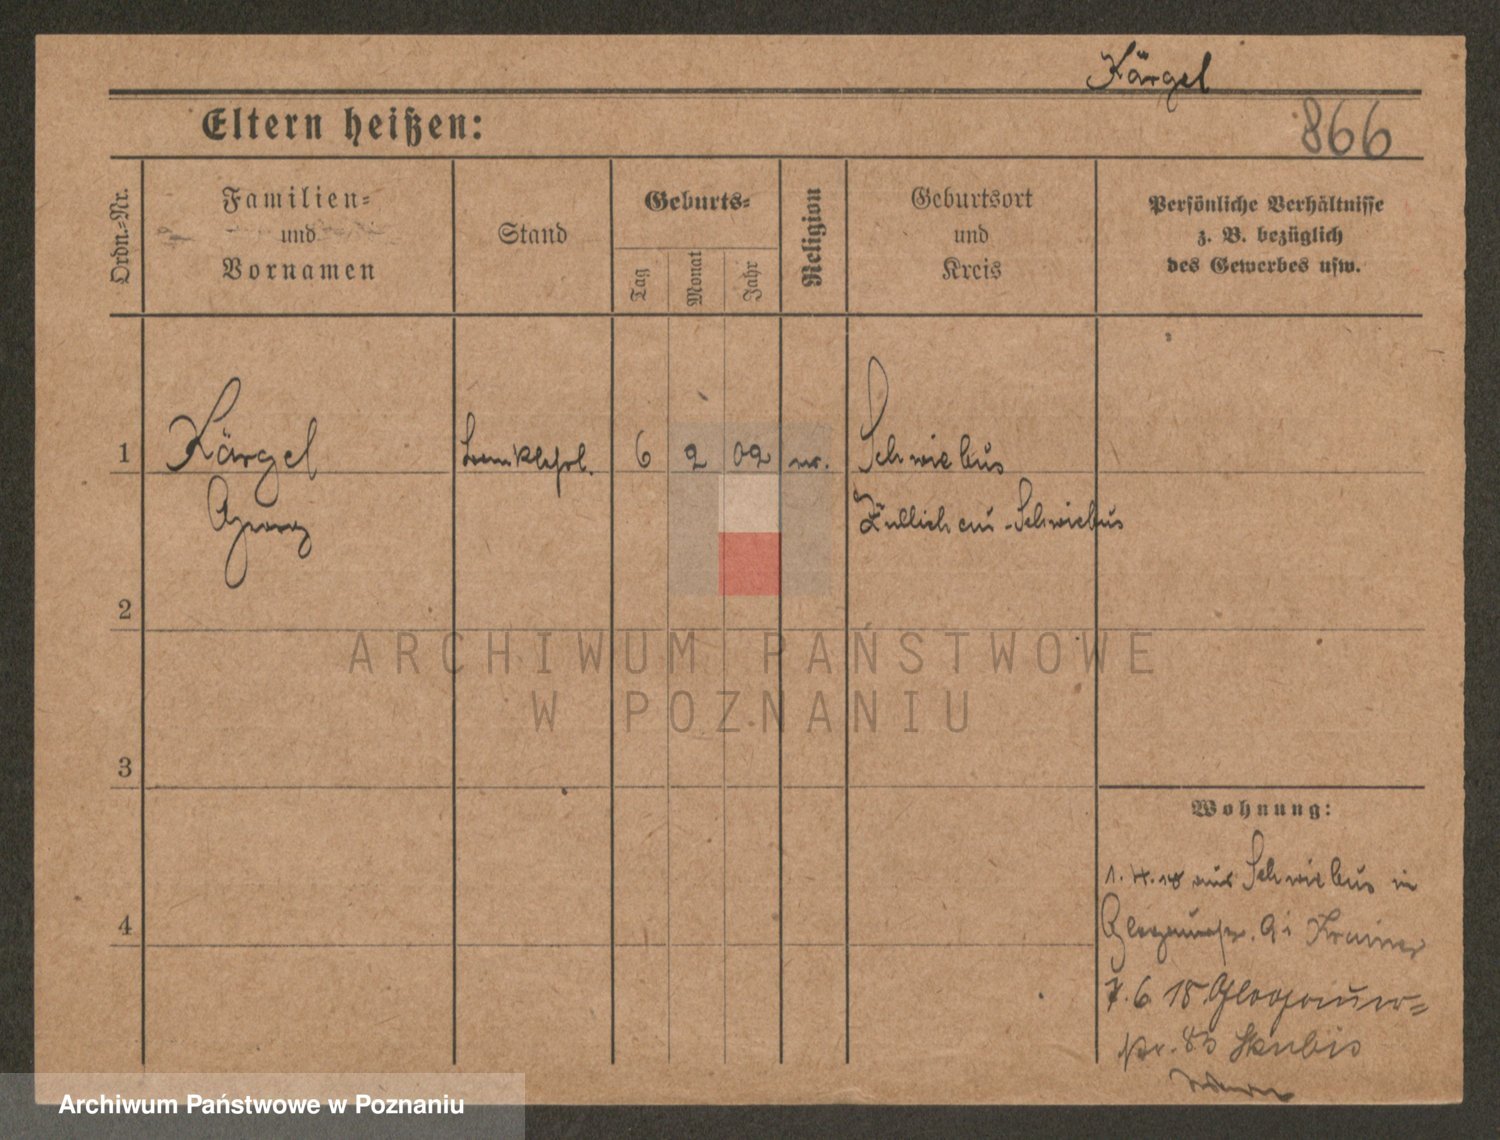 Kärgel
866
Eltern heißen:
Ordn.-Nr.
Familien-
und
Vornamen
Stand
Geburts-
Tag
Monat
Jahr
Religion
Geburtsort
und
Kreis
Persönliche Verhältnisse
z. B. bezüglich
des Gewerbes usw.
1
Kärgel
6
2
02
Schwiebus
Georg
Züllichau-Schwiebus
2
ARCHIWUM PAŃSTWOWE
W POZNANIU
3
Wohnung:
1.4.18 aus Schwiebus in
4
7.6 18 Glogauer-
str. 83
Archiwum Państwowe w Poznaniu